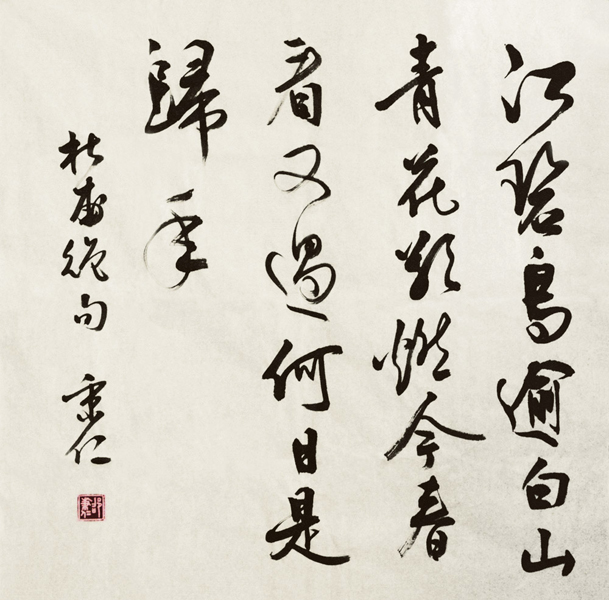 江碧鳥逾白山
青花欲燃今春
看又過何日是
歸年
杜甫絕句 秉仁